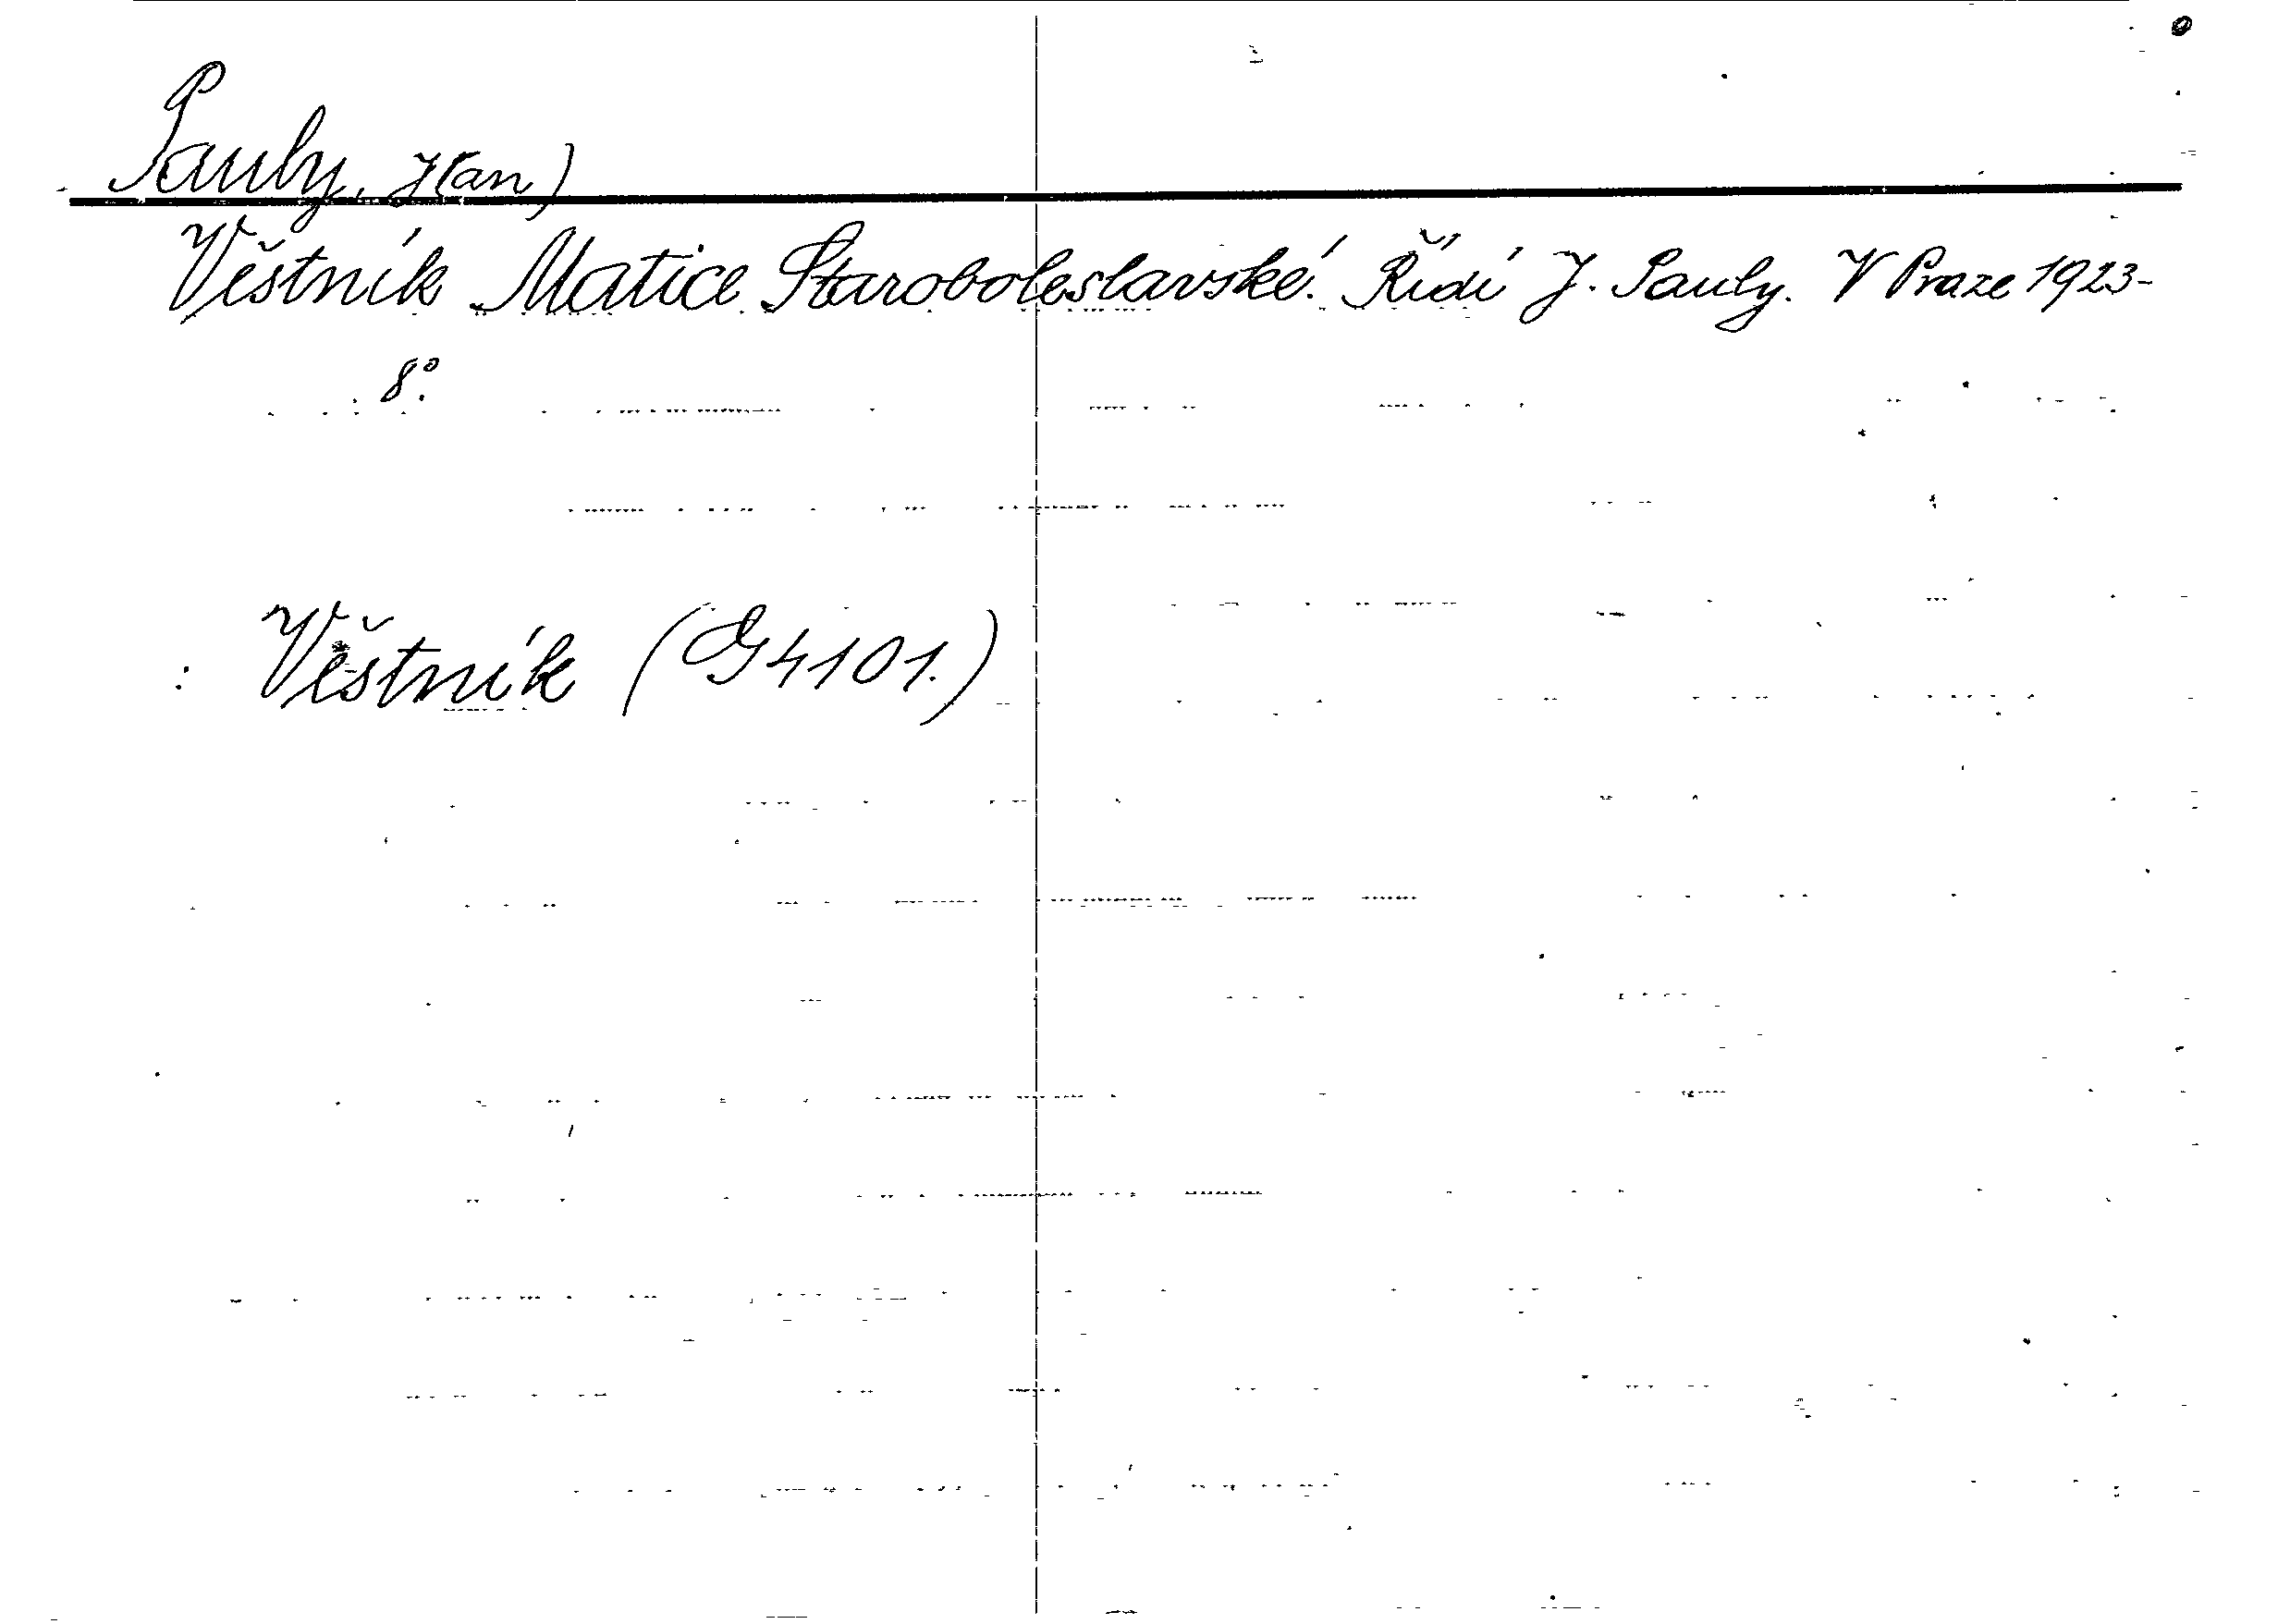 Pauly, J(an)
Věstník Matice Staroboleslavské. Řídí J. Pauly. V Praze 1923-
8°.
Věstník (G 4101.)